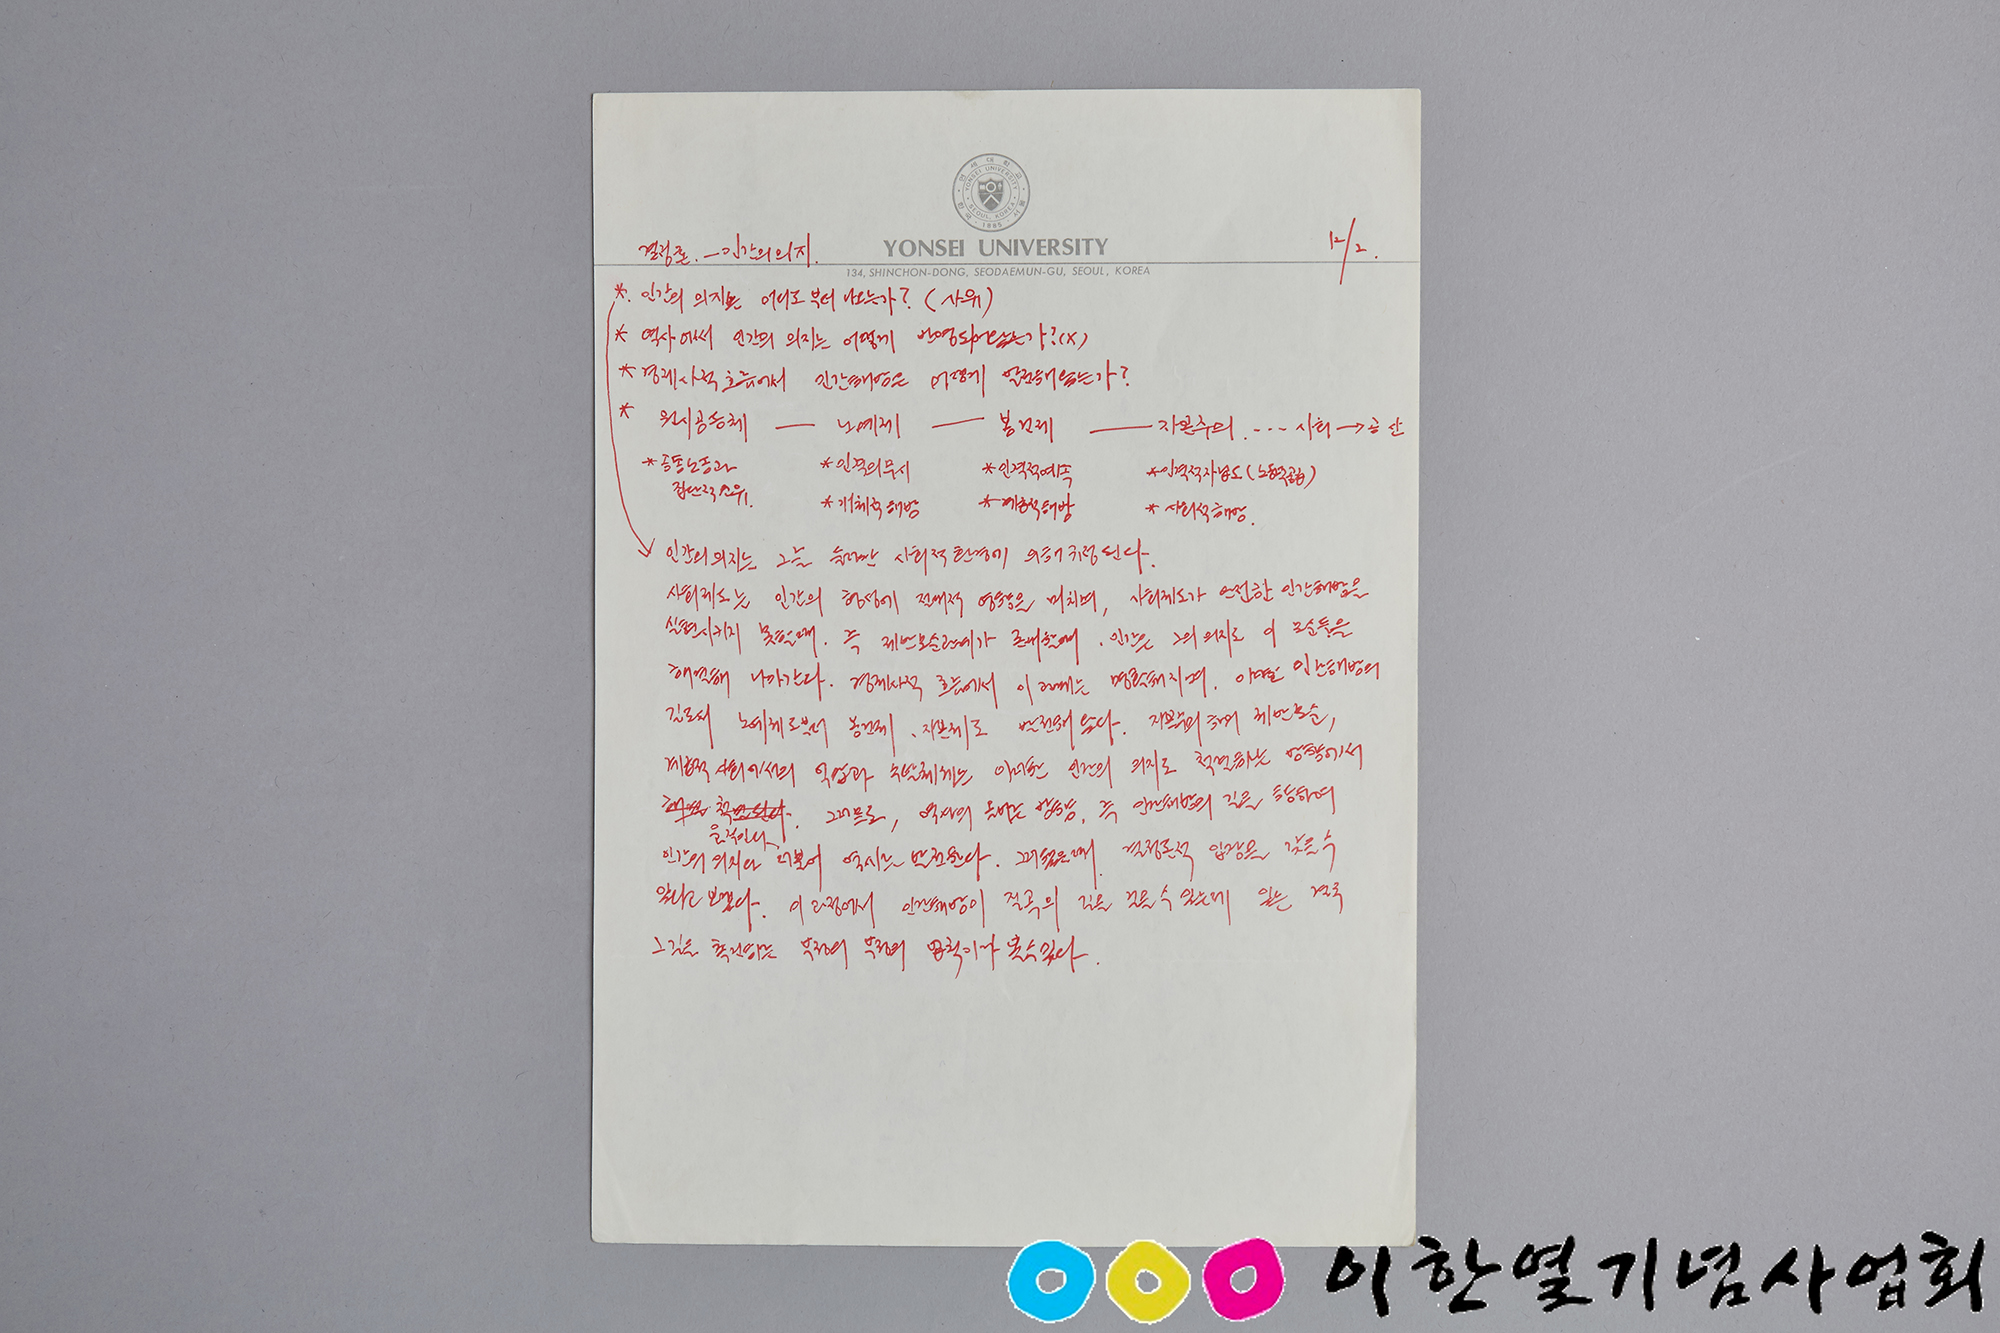 연세대학교
YONSEI UNIVERSITY
SEOUL, KOREA
1885
한국 서울
YONSEI UNIVERSITY
134, SHINCHON-DONG, SEODAEMUN-GU, SEOUL, KOREA
결정론. - 인간의 의지.
12/2.
*. 인간의 의지는 어디로부터 나오는가? (사유)
* 역사에서 인간의 의지는 어떻게 반영되어 왔는가?(X)
* 경제사적 흐름에서 인간해방은 어떻게 발전해 왔는가?
* 원시공동체 — 노예제 — 봉건제 — 자본주의 . --- 사회 → 공산
* 공동노동과 * 인격의 무시 * 인격적 예속 * 인격적 자유도 (노동력)
집단적 소유. * 개체적 해방 * 계층적 해방 * 사회적 해방.
인간의 의지는, 그를 둘러싼 사회적 환경에 의해 규정된다.
사회제도는 인간의 형성에 전체적 영향을 미치며, 사회제도가 완전한 인간해방을
실현시키지 못할 때. 즉 제반모순관계가 존재할 때. 인간은 그의 의지로 이 모순들을
해결해 나가간다. 경제사적 흐름에서 이 관계는 명확해지며. 인간해방의
길로서 노예제로부터 봉건제, 자본제로 발전해 왔다. 자본주의하의 제반모순,
계층적 사회에서의 억압과 수탈체계는 이러한 인간의 의지로 척결하는 방향에서
움직인다.
그러므로, 역사의 올바른 방향, 즉 인간해방의 길을 통하여
인간의 의지와 더불어 역사는 발전한다. 결정론적 입장은 갖을 수
없다고 보겠다. 이 과정에서 인간해방이 질곡의 길을 걸을 수 있는데 있는 결국
그 길을 촉진하는 부정의 부정의 법칙이라 볼 수 있다.
이한열기념사업회